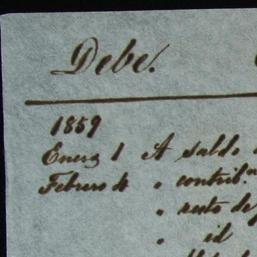 Debe.
1859
Enero 1 A saldo
Febrero 4 " contrib.ⁿ
" resto de
" id